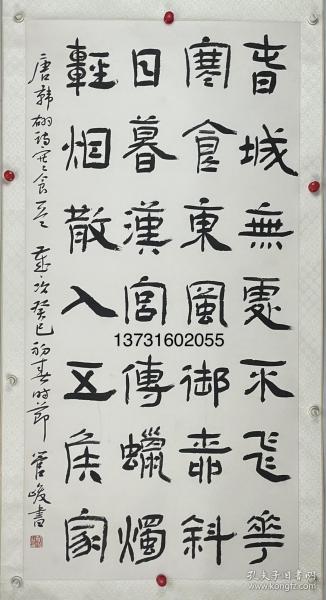 春城無處不飛花
寒食東風御柳斜
日暮漢宮傳蠟燭
輕烟散入五侯家
唐韓翃詩寒食一首 歲次癸巳初春時節 管峻書
13731602055
孔夫子旧书网